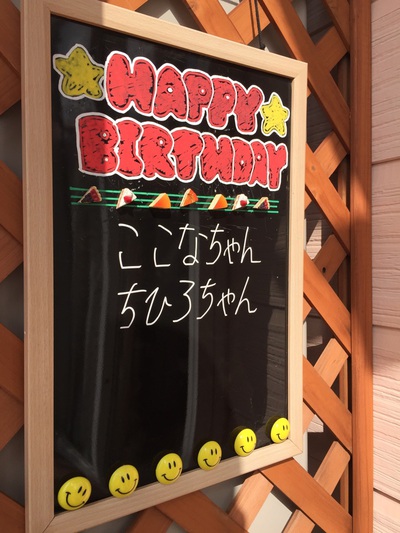 HAPPY
BIRTHDAY
ここなちゃん
ちひろちゃん